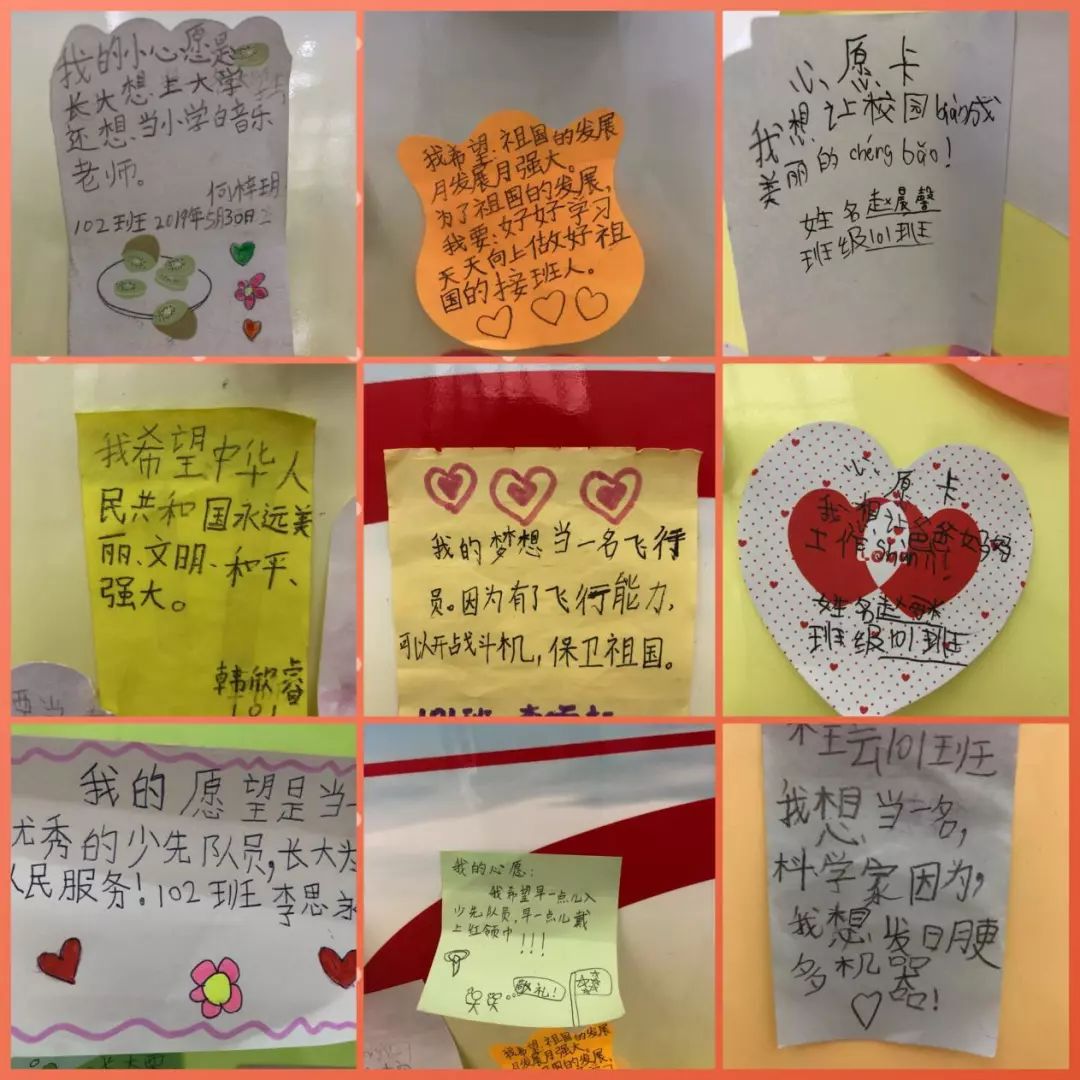 我的小心愿是
长大想上大学
还想当小学白音乐
老师。
何梓玥
102班 2019年5月30日
我希望祖国的发展
月发展月强大。
为了祖国的发展,
我要:好好学习
天天向上做好祖
国的接班人。
心愿卡
我想让校园biàn成
美丽的chéng bǎo!
姓名赵晨馨
班级101班
我希望中华人
民共和国永远美
丽、文明、和平、
强大。
韩欣
101
我的梦想当一名飞行
员。因为有了飞行能力,
可以开战斗机,保卫祖国。
101班
心原卡
我想让爸爸妈妈
工作shùn!
姓名赵
班级101班
我的愿望是当一
优秀的少先队员,长大为
人民服务!102班 李思
我的心愿:
我希望早一点儿入
少先队员,早一点儿戴
上红领巾!!!
敬礼!
我希望祖国的发展
月发展月强大。
101班
我想当一名,
科学家因为,
我想发日月更
多机器!